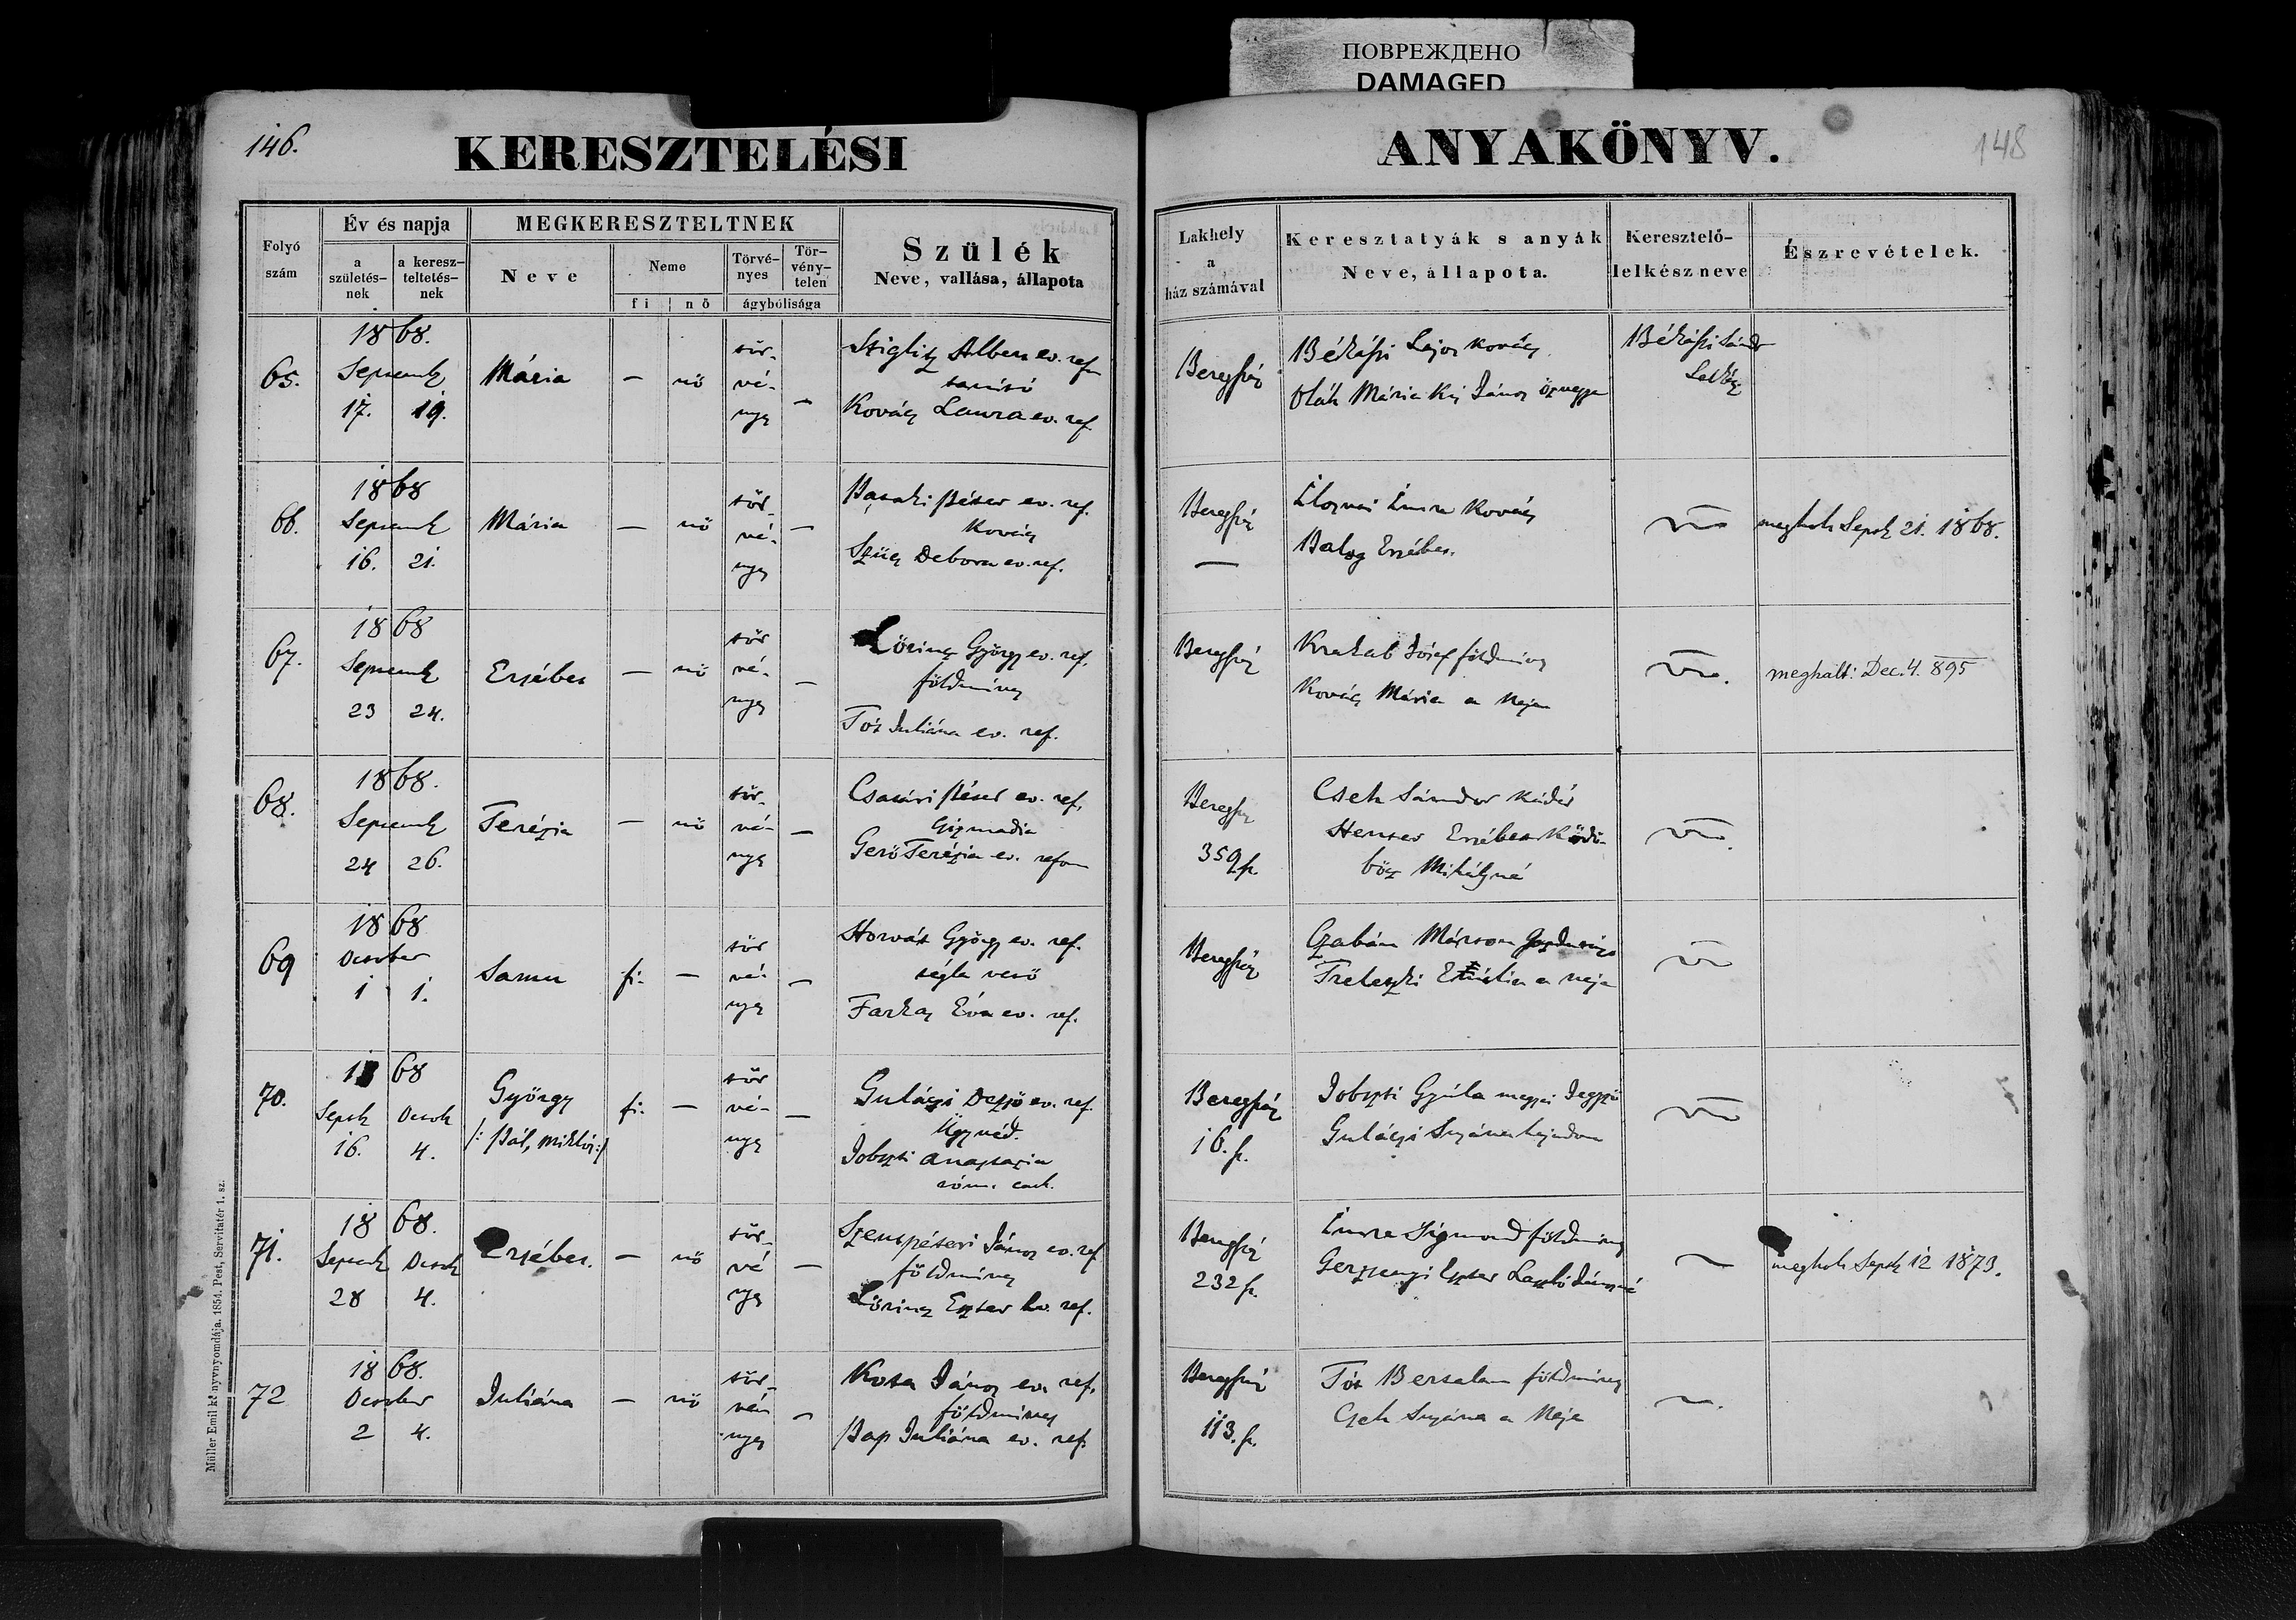 ПОВРЕЖДЕНО
DAMAGED
146.
KERESZTELÉSI
ANYAKÖNYV.
148
Folyó szám
Év és napja
a születés-nek
a keresz-teltetés-nek
MEGKERESZTELTNEK
Neve
Neme
fi
nő
Törvé-nyes
Tör-vény-telen
ágybólisága
Szülék
Neve, vallása, állapota
Lakhely
a
ház számával
Keresztatyák s anyák
Neve, állapota.
Keresztelő-
lelkész neve
Észrevételek.
65.
1868.
Septemb
17. 19.
Mária
—
nő
tör-
vé-
nyes
—
Albert ev. ref
tanító
Kovács Laura ev. ref.
Beregszász
Békássi Lajos kovács
Oláh Mária Kis János özvegye
Békássi Sándor
Lelkész
66.
1868
Septemb
16. 21.
Mária
—
nő
tör-
vé-
nyes
—
Péter ev. ref.
kovács
Szűcs Debora ev. ref.
Beregszász
—
Ilosvai Imre kovács
Balog Erzsébet.
megholt Sept 21. 1868.
67.
1868
Septemb
23 24.
Erzsébet
—
nő
tör
vé-
nyes
—
Lőrincz György ev. ref.
földmíves
Tót Juliána ev. ref.
Beregszász
Krakab Jósef földmíves
Kovács Mária a neje
meghalt: Dec. 4. 895
68.
1868.
Septemb
24 26.
Terézia
—
nő
tör-
vé-
nyes
—
Császári Péter ev. ref.
Csizmadia
Gerő Terézia ev. refor
Beregsz
359 sz.
Cseh Sándor kádár
Erzsébet Ködö-
böcz Mihályné
69
1868
October
1 1.
Samu
fi.
—
tör
vé-
nyes
—
Horvát György ev. ref.
tégla vető
Farkas Éva ev. ref.
Beregszász
Czabán Márton
Emilia a neje
70.
1868
Septb Octob
16. 4.
György
/: Pál, Miklós :/
fi.
—
tör
vé-
nyes
—
Gulácsi Dezső ev. ref.
Ügyvéd.
Jobszti Anasztazia
róm. cath.
Beregszász
16. sz.
Jobszti Gyula megyei Jegyző
Gulácsi Suzánna hajadon
71.
1868.
Septemb Octob
28 4.
Erzsébet.
—
nő
tör-
vé
nyes
—
Szentpéteri János ev. ref
földmíves
Lőrincz Eszter Ev. ref.
Beregszász
232 sz.
Imre Sigmond földmíves
Gerzsenyi Eszter László Jánosné
megholt Septb 12 1873.
72
1868.
October
2 4.
Juliána
—
nő
tör-
vé-
nyes
—
Kota János ev. ref.
földmíves
Pap Juliána ev. ref.
Beregszász
113. sz.
Tót Bertalan földmíves
Cseh Suzána a neje
Müller Emil könyvnyomdája. 1854. Pest, Servitatér 1. sz.